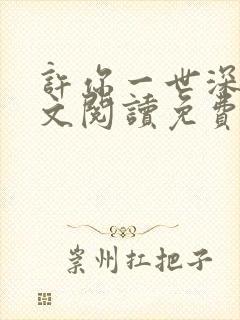 許你一世深
文閱讀免費
崇州扛把子